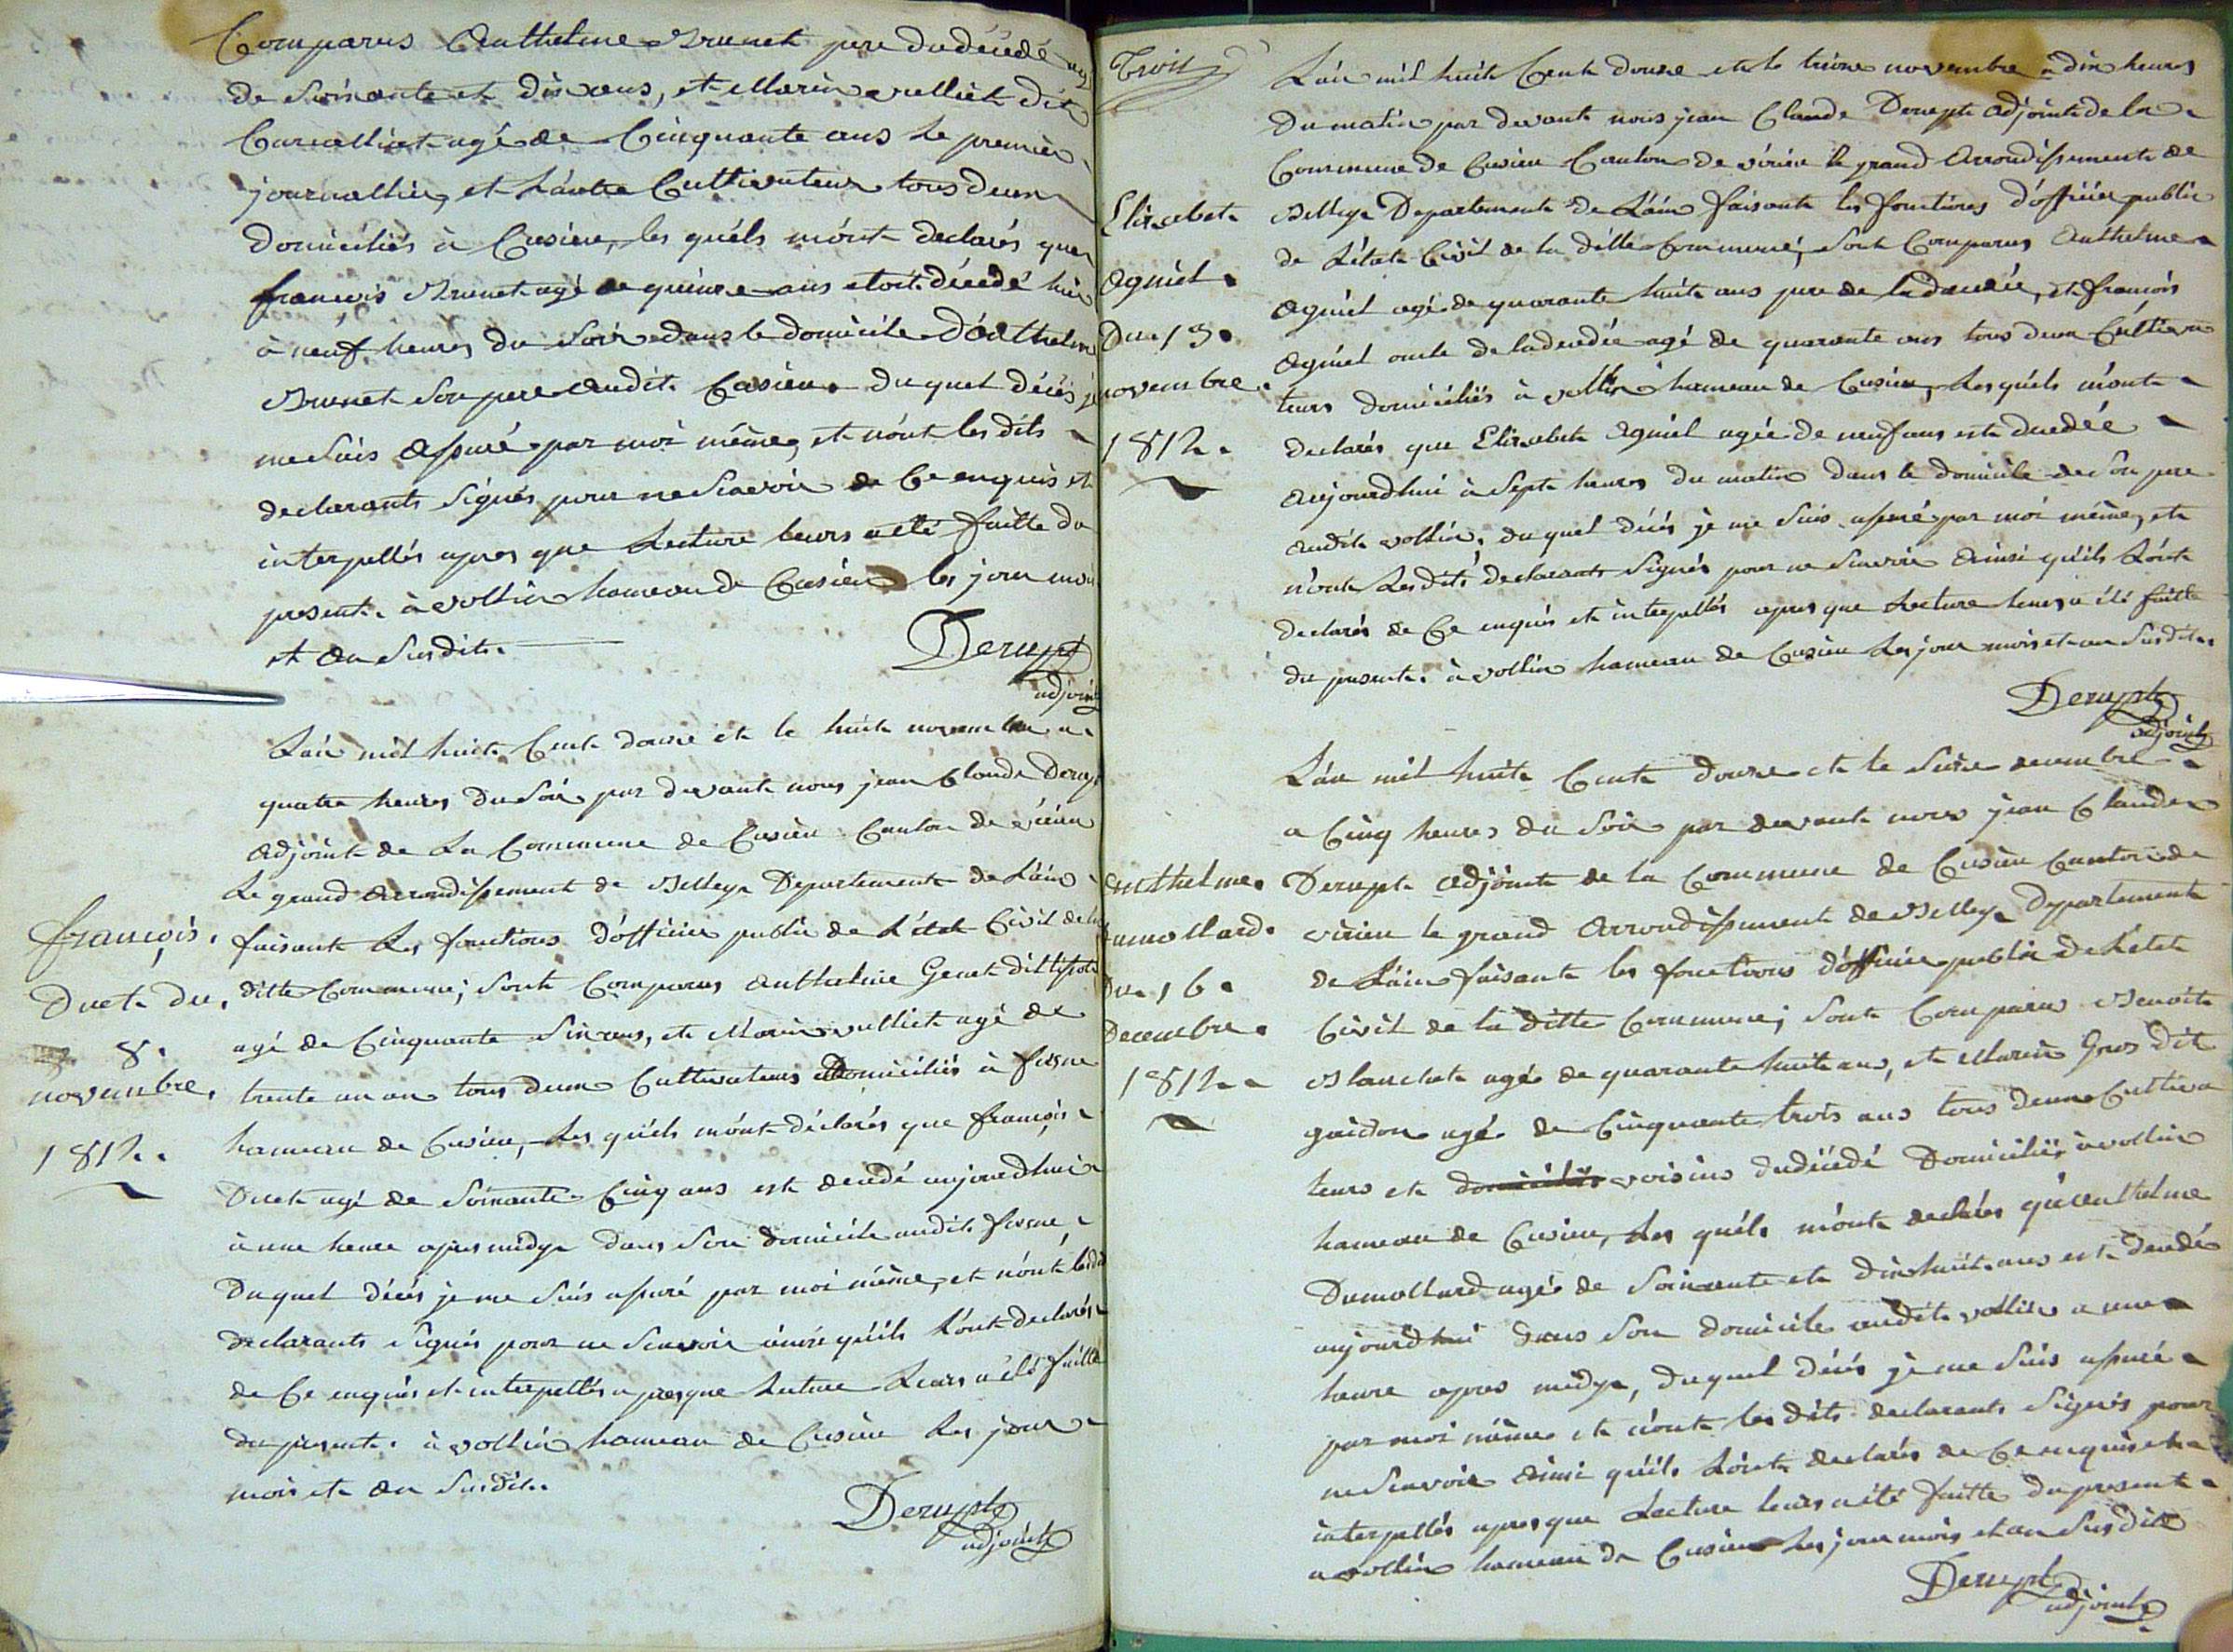 Comparus Anthelme Brunet pere du décédé agé
de Soixante et dix ans, et Marin vulliet dit
Curvalliat agé de Cinquante ans le premier
journallier, et L'autre Cultivateur tous deux
domiciliés à Cusieu, les quéls m'ónt declarés que
françois Brunet agé de quinze ans etoit décedé hier
à neuf heures du Soir dans le domicile D'Anthelme
Brunet Son pere audit Cusieu. duquel décés je
me Suis assuré par moi même, et n'ónt les dits
declarants Signés pour ne Scavoir de Ce enquis et
interpellés apres que Lecture leurs a été faitte du
present. à vollien hameau de Cusieu les jour mois
et an Susdits.
Derupt
adjoint
L'an mil huit Cent douze et le huit novembre a
quatre heures du Soir par devant nous jean Claude Derupt
adjoint de La Commune de Cusieu Canton de virieu
Le grand arrondissement de Belley Departement de L'ain
faisant Les fonctions d'officier public de L'état Civil de la
ditte Commune; Sont Comparus Anthelme Genet dit
agé de Cinquante Six ans, et Marin vulliet agé de
trente un an tous deux Cultivateurs domiciliés à
hameau de Cusieu, Les quéls m'ónt déclarés que françois
Duet agé de Soixante Cinq ans est decedé aujourdhui
à une heure apres midy dans Son domicile audit
Duquel décés je me Suis assuré par moi même, et n'ónt lesdits
declarants Signés pour ne Scavoir ainsi quéils L'ont declarés
de Ce enquis et interpellés apres que Lecture Leurs a été faitte
du present. à vollien hameau de Cusieu Les jour
mois et an Susdits.
Derupt
adjoint
françois
Duet du
8
novembre
1812.
Trois
L'an mil huit Cent douze et le treize novembre à dix heures
du matin par devant nous jean Claude Derupt adjoint de la
Commune de Cusieu Canton de virieu le grand Arrondissement de
Belley Departement de L'ain faisant les fonctions d'officier public
de L'état Civil de la ditte Commune, Sont Comparus Anthelme
Agniel agé de quarante huit ans pere de la décédée, et françois
Agniel oncle de la decedée agé de quarante ans tous deux Cultiva
teurs domiciliés à vollien hameau de Cusieu, Les quéls m'ont
declarés que Elizabet Agniel agée de neuf ans est decedée
aujourdhui à Sept heures du matin dans le domicile de Son pere
audit vollien, duquel décés je me Suis assuré par moi même, et
n'ont Les dits declarants Signés pour ne Scavoir Ainsi quéils L'ont
declarés de Ce enquis et interpellés apres que Lecture leurs a été faitte
du present. à vollien hameau de Cusieu Les jour mois et an Susdits
Derupt
adjoint
Elizabet
Agniel
Du 13
novembre
1812.
L'an mil huit Cent douze et le Seize decembre
a Cinq heures du Soir par devant nous jean Claude
Derupt adjoint de la Commune de Cusieu Canton de
virieu le grand Arrondissement de Belley Departement
de L'ain faisant les fonctions d'officier public de L'etat
Civil de la ditte Commune; Sont Comparus Benoit
Blanchet agé de quarante huit ans, et Marin Gros dit
guidon agé de Cinquante trois ans tous deux Cultiva
teurs et domiciliés voisins du décédé Domiciliés à vollien
hameau de Cusieu, Les quéls m'ont declarés qu'anthelme
Dumollard agé de Soixante et dix huit ans est decedé
aujourdhui dans Son domicile audit vollien a une
heure apres midy, duquel décés je me Suis assuré
par moi même et n'ont les dits declarants Signés pour
ne Scavoir ainsi quéils L'ont declarés de Ce enquis et
interpellés apres que Lecture leurs a été faitte du present
a vollien hameau de Cusieu Les jour mois et an Susdits
Derupt
adjoint
Anthelme
Dumollard
Du 16
Decembre
1812.